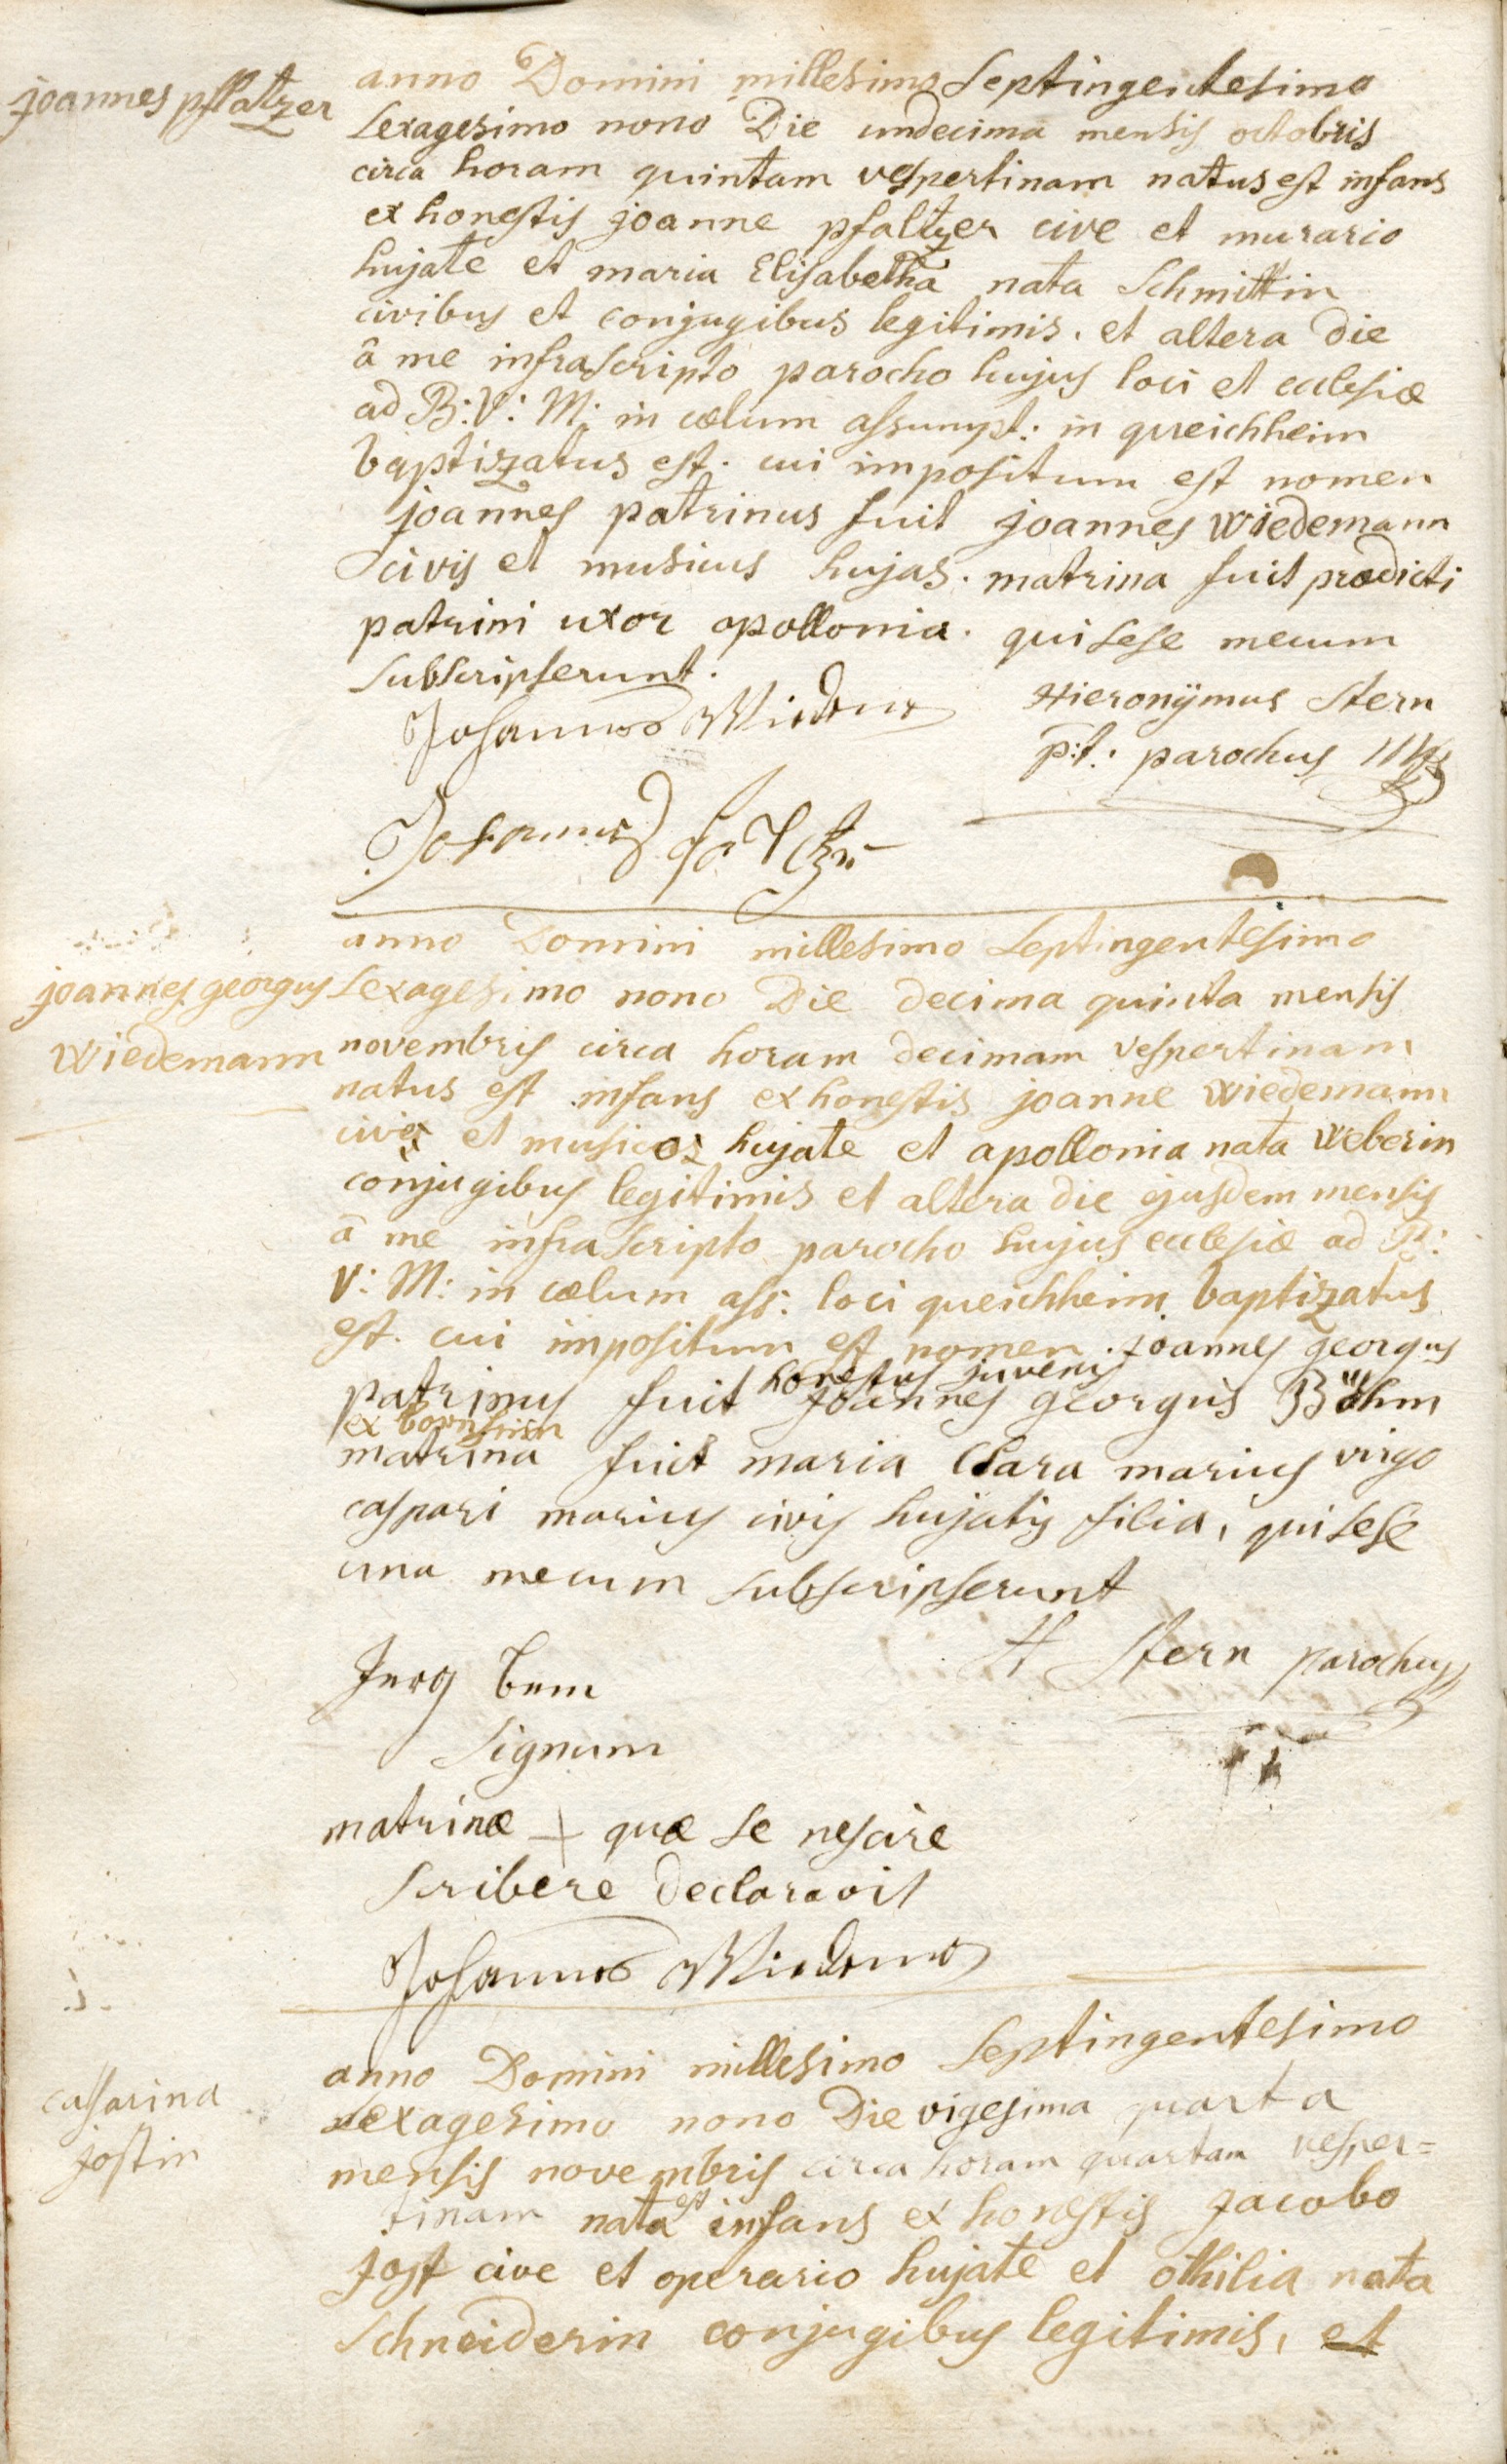 joannes pflatzer
anno Domini millesimo Septingentesimo
Sexagesimo nono Die undecima mensis octobris
circa horam quintam vespertinam natus est infans
ex honestis joanne pfaltzer cive et murario
hujate et maria Elisabetha nata Schmittin
civibus et conjugibus legitimis. et altera Die
â me infrascripto parocho hujus loci et ecclesiæ
ad B: V: M: in cœlum assumpt: in queichheim
baptizatus est. cui impositum est nomen
joannes patrinus fuit joannes Wiedemann
civis et musicus hujas. matrina fuit prædicti
patrini uxor apollonia. qui sese mecum
subscripserunt.
Hieronÿmus Stern
p:t: parochus
Johannes Widema
Johannes
joannes georgus
Wiedemann
anno Domini millesimo Septingentesimo
Sexagesimo nono Die decima quinta mensis
novembris circa horam decimam vespertinam
natus est infans ex honestis joanne wiedemann
cive et musico hujate et apollonia nata Weberin
conjugibus legitimis et altera die ejusdem mensis
â me infrascripto parocho hujus ecclesiæ ad B:
V: M: in cœlum ass: loci queichheim baptizatus
est. cui impositum est nomen joannes georgus
honestus juvenis
patrinus fuit joannes georgus Böhm
ex
matrina fuit maria Clara marius virgo
caspari marius civis hujatis filia, qui sese
una mecum subscripserunt
H Stern parochus
Jerg bem
Signum
matrinæ + quæ se nescire
scribere declaravit
Johannes Widema
catharina
jostin
anno Domini millesimo Septingentesimo
sexagesimo nono Die vigesima quarta
mensis novembris circa horam quartam vesper=
tinam nata est infans ex honestis Jacobo
Jost cive et operario hujate et othilia nata
Schneiderin conjugibus legitimis, et